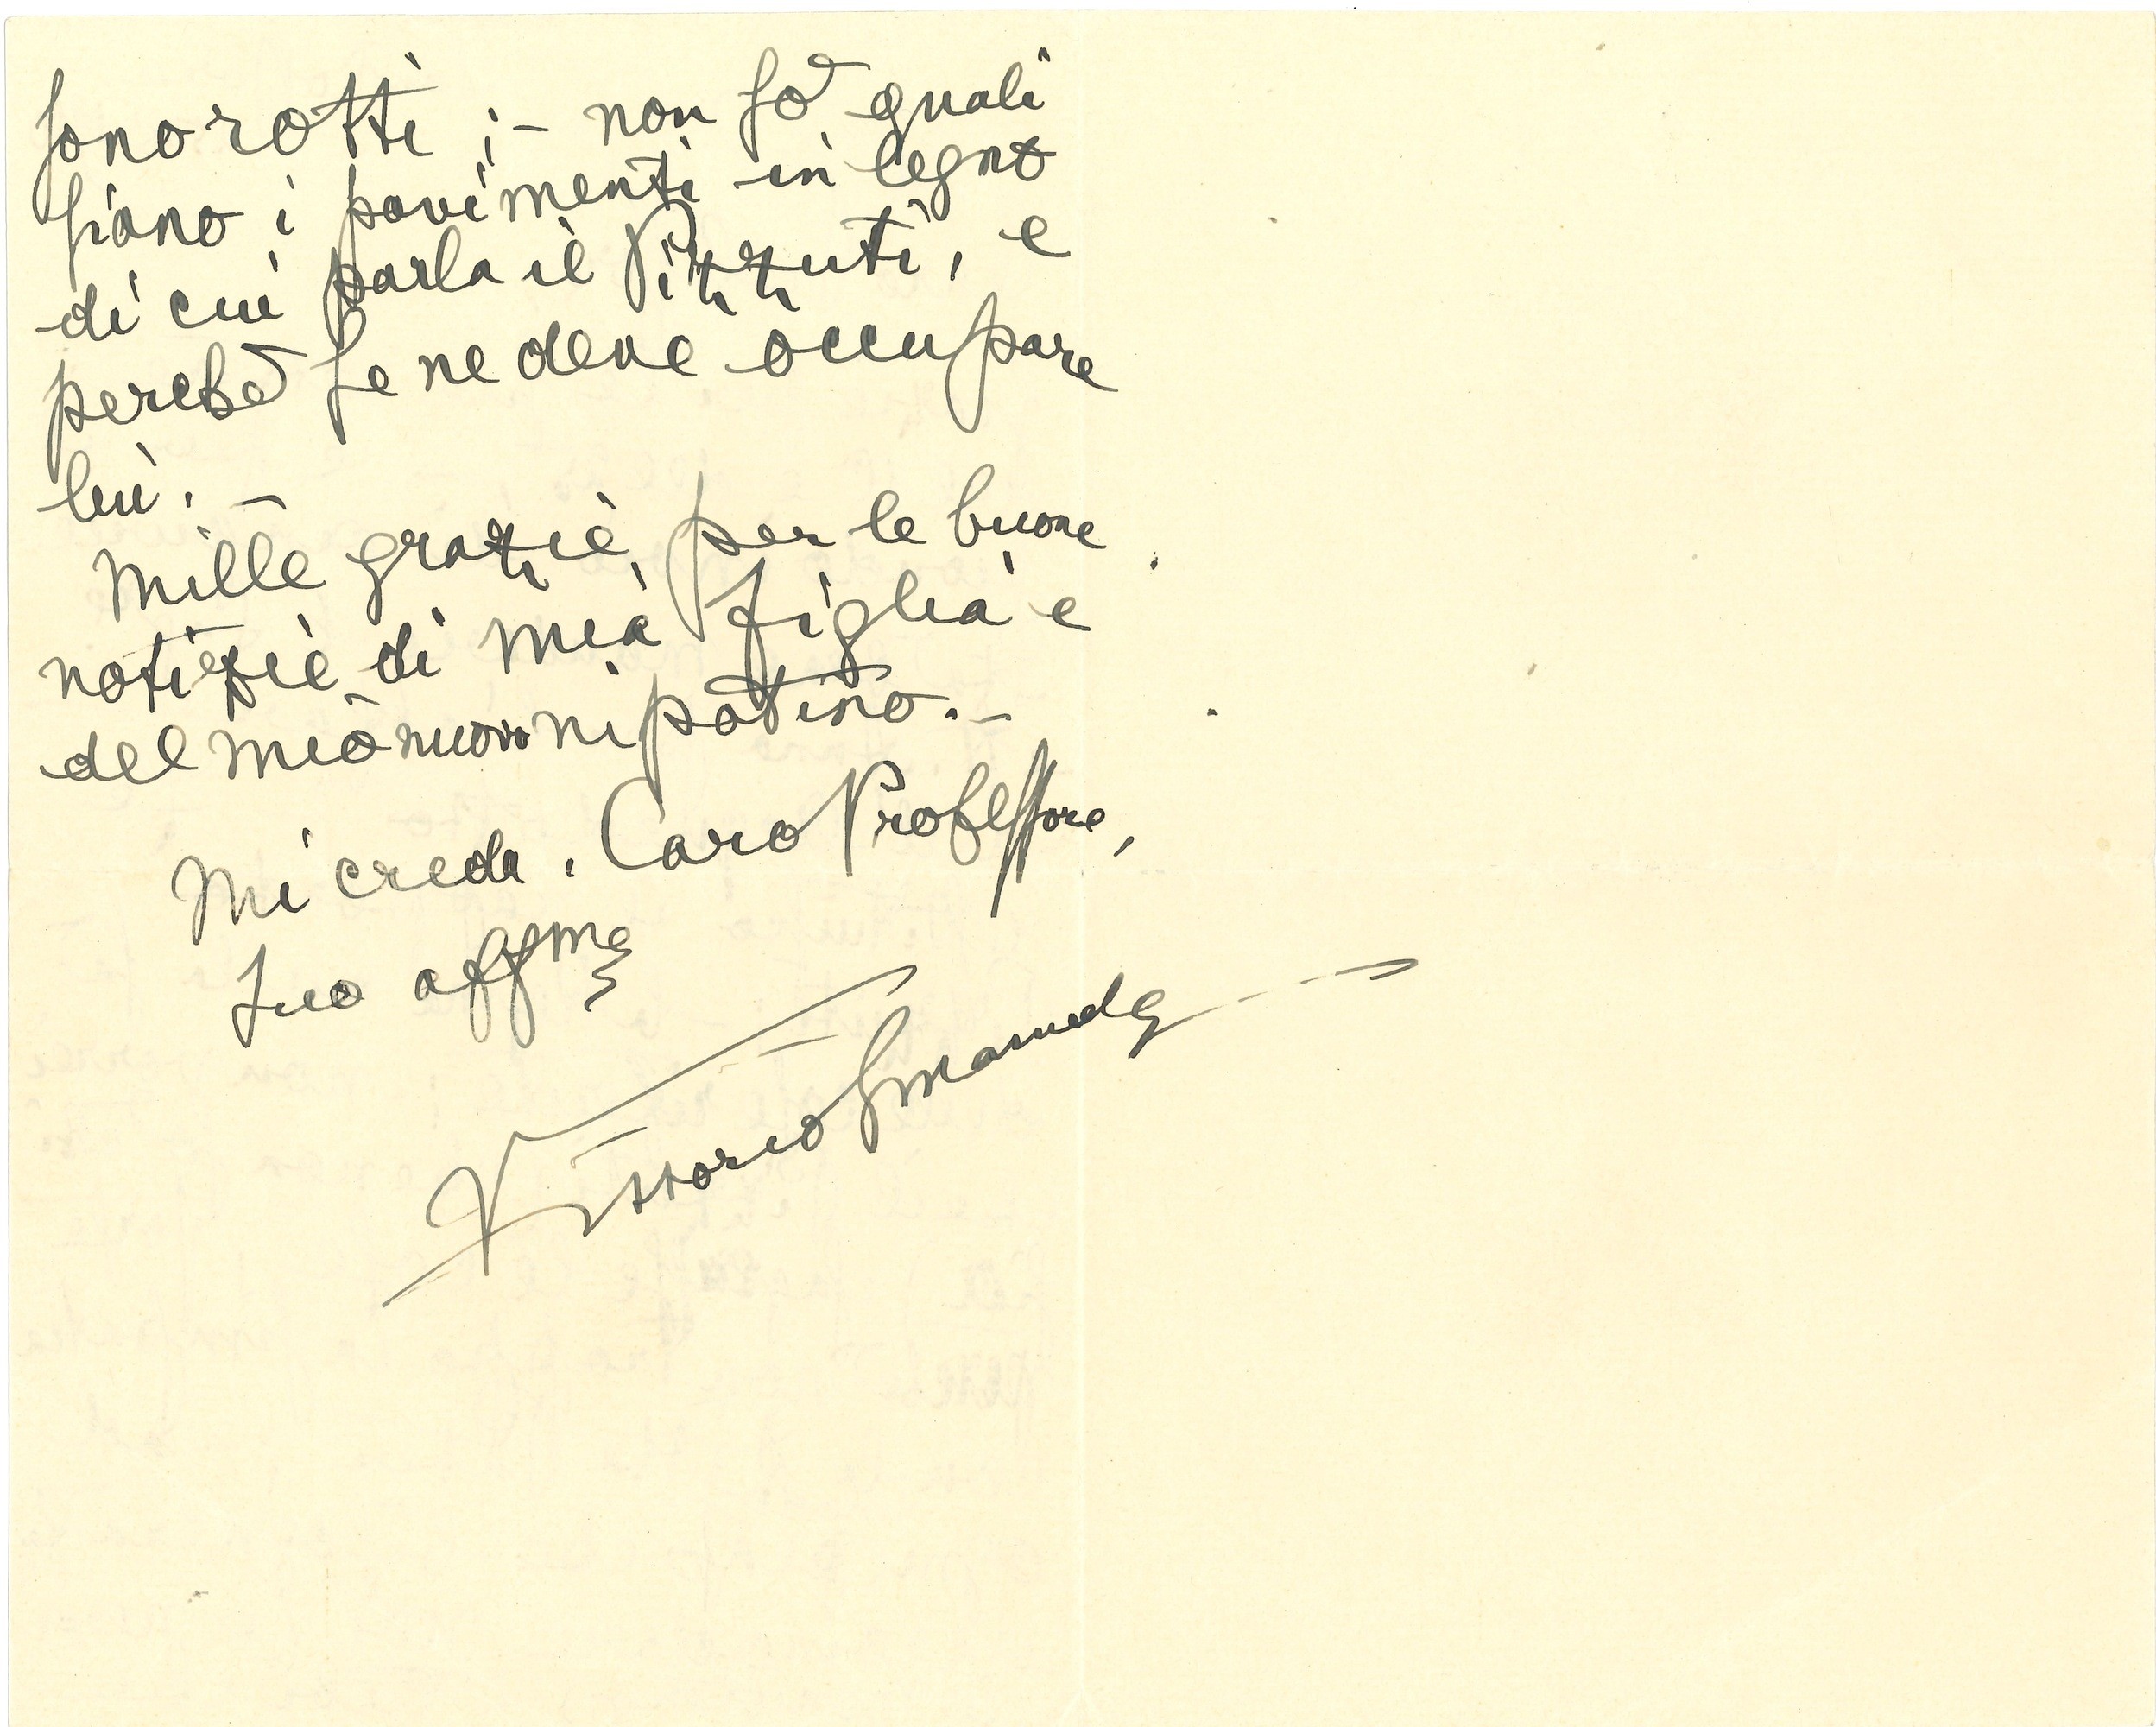 sono rotti ; – non sò quali
siano i pavimenti in legno
di cui parla il Pizzuti, e
perchè se ne deve occupare
lui. –
Mille grazie per le buone
notizie di mia figlia e
del mio nuovo nipotino. –
Mi creda, Caro Professore,
suo aff.mo
Vittorio Emanuele